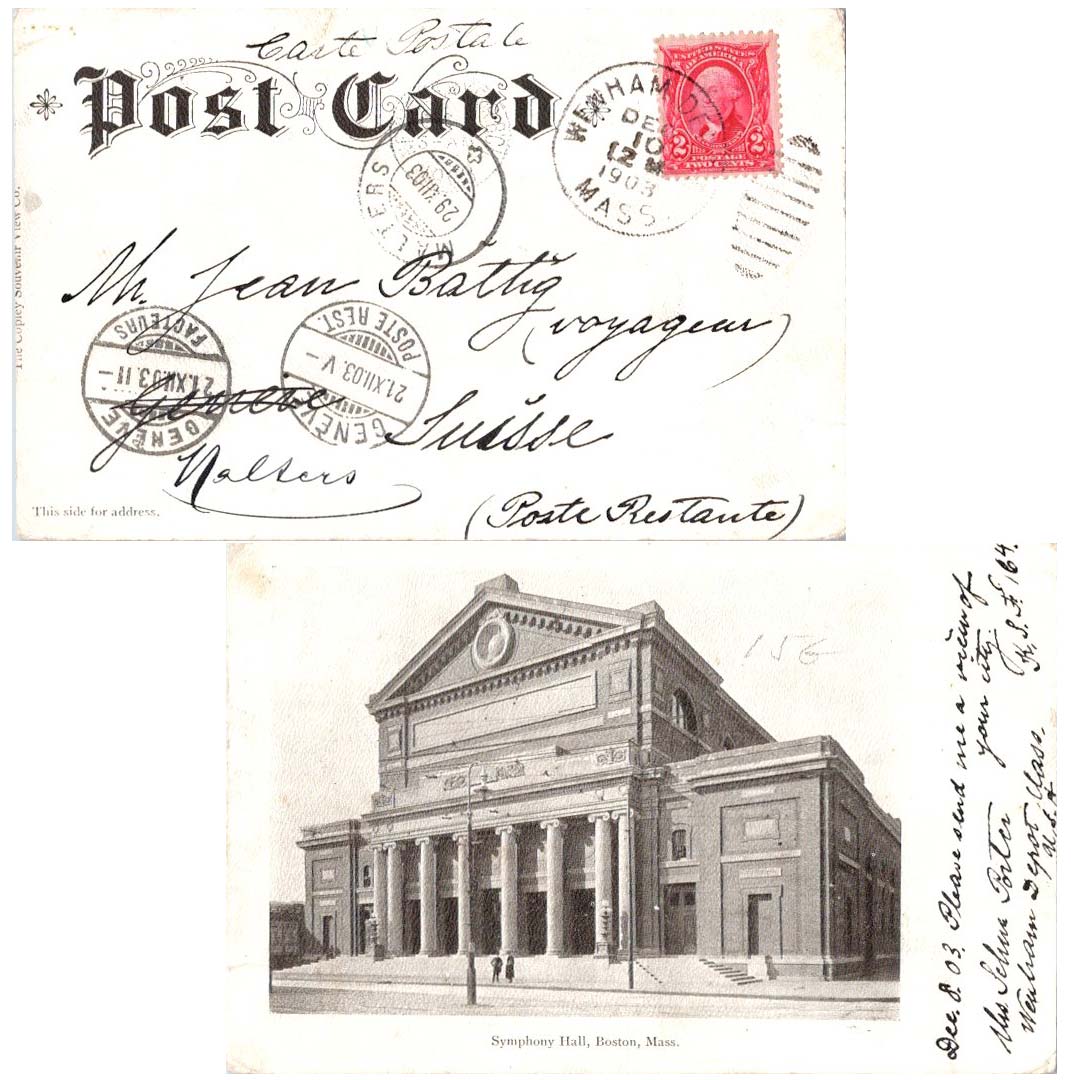 Carte Postale
Post Card
UNITED STATES
OF AMERICA
2 2
POSTAGE
TWO CENTS
WENHAM
DEC
10
12 M
1903
MASS.
MALTERS
29.XII.03
M. Jean Battig
(voyageur)
GENÈVE
FACTEURS
21.XII.03.11-
GENÈVE
POSTE REST.
21.XII.03.V-
Genève Suisse
Malters
(Poste Restante)
This side for address.
The Copley Souvenir View Co.
156
Symphony Hall, Boston, Mass.
Dec. 8. 03. Please send me a view of
your city.
K. S. F. 164.
Mrs Selma Porter
Wenham Depot Mass.
U.S.A